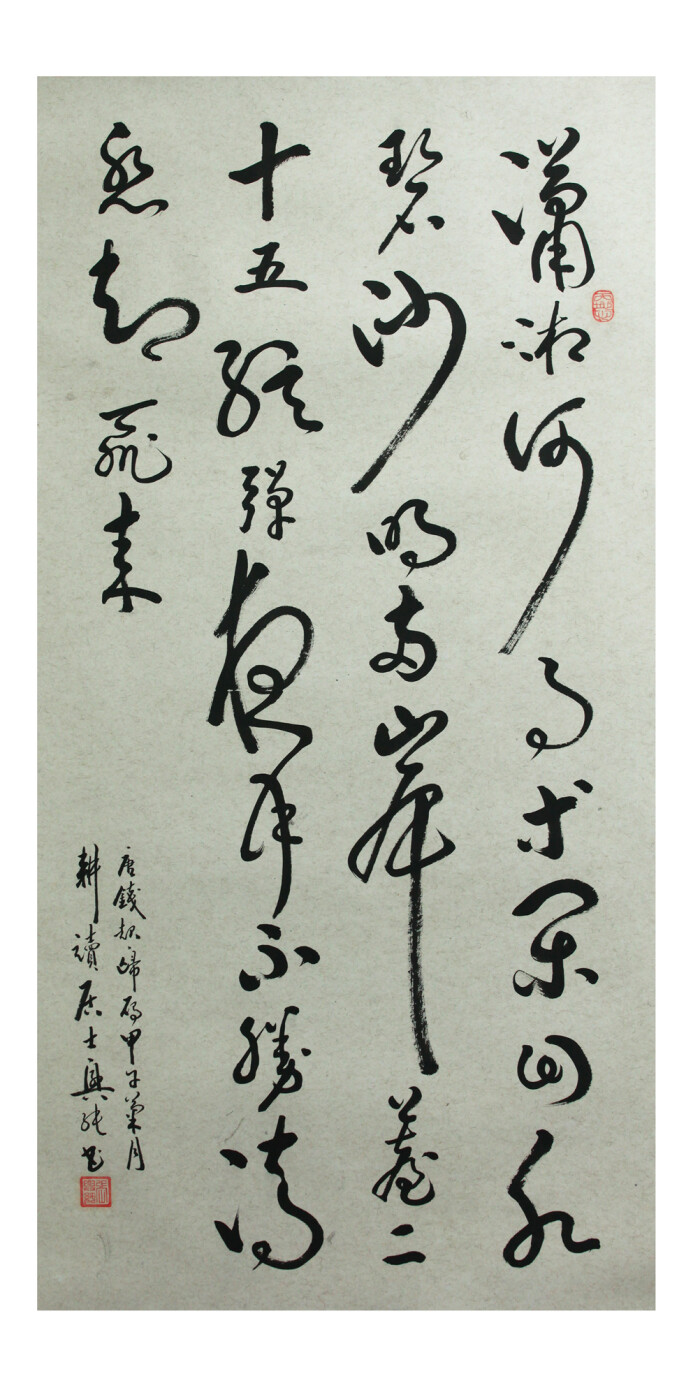 瀟湘何事等閑回水
碧沙明兩岸苔二
十五絃彈夜月不勝清
怨却飛来
唐錢起歸雁甲子菊月
耕讀居士興書